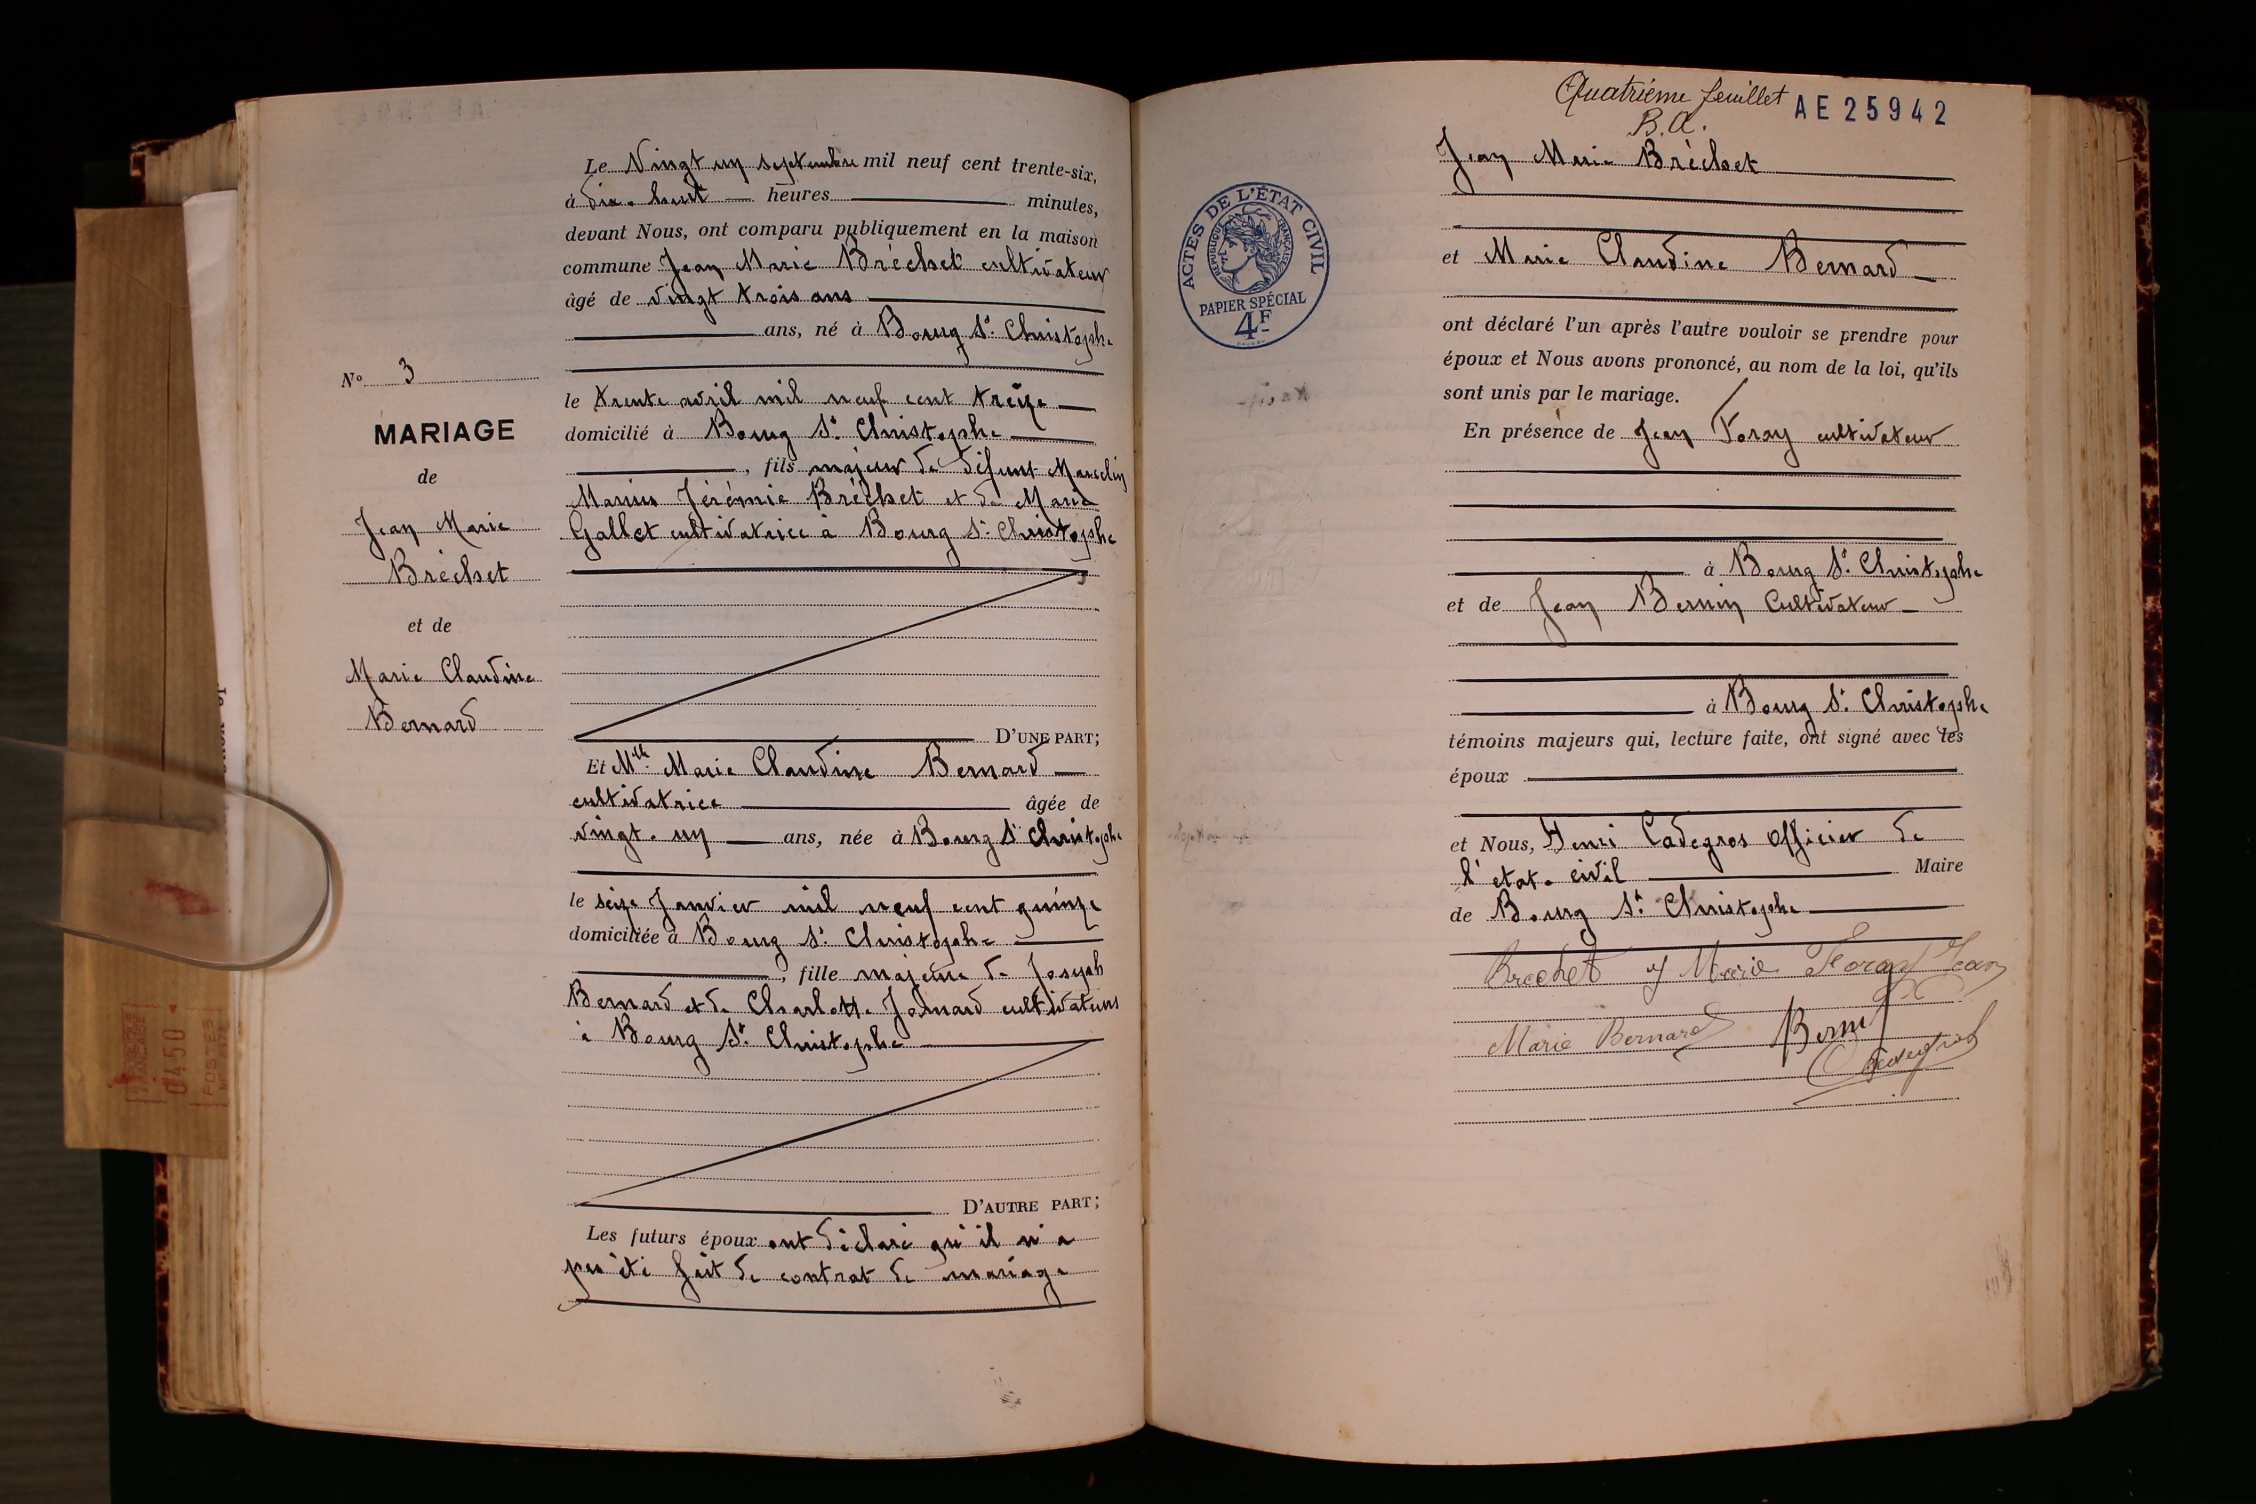 Le Vingt un septembre mil neuf cent trente-six,
à dix-huit heures minutes,
devant Nous, ont comparu publiquement en la maison
commune Jean Marie Bréchet cultivateur
âgé de vingt trois ans
ans, né à Bourg St Christophe
le trente avril mil neuf cent treize
domicilié à Bourg St Christophe
, fils majeur de défunt Marcelin
Marius Jérémie Bréchet et de Marie
Gallet cultivatrice à Bourg St Christophe
D'UNE PART;
Et Mlle Marie Claudine Bernard
cultivatrice âgée de
vingt-un ans, née à Bourg St Christophe
le seize Janvier mil neuf cent quinze
domiciliée à Bourg St Christophe
, fille majeure de Joseph
Bernard et de Charlotte cultivateurs
à Bourg St Christophe
D'AUTRE PART;
Les futurs époux ont déclaré qu'il n'a
pas été fait de contrat de mariage
No 3
MARIAGE
de
Jean Marie
Bréchet
et de
Marie Claudine
Bernard
0450
POSTES
Quatrième feuillet AE25942
B.A.
Jean Marie Bréchet
et Marie Claudine Bernard
ont déclaré l'un après l'autre vouloir se prendre pour
époux et Nous avons prononcé, au nom de la loi, qu'ils
sont unis par le mariage.
En présence de Jean Foray cultivateur
à Bourg St Christophe
et de Jean Bernin Cultivateur
à Bourg St Christophe
témoins majeurs qui, lecture faite, ont signé avec les
époux
et Nous, Henri Cadegros Officier de
l'etat-civil Maire
de Bourg St Christophe
Brechet J Marie Foray Jean
Marie Bernard Bernin
Cadegros
ACTES DE L'ÉTAT CIVIL
REPUBLIQUE FRANÇAISE
PAPIER SPÉCIAL
4F